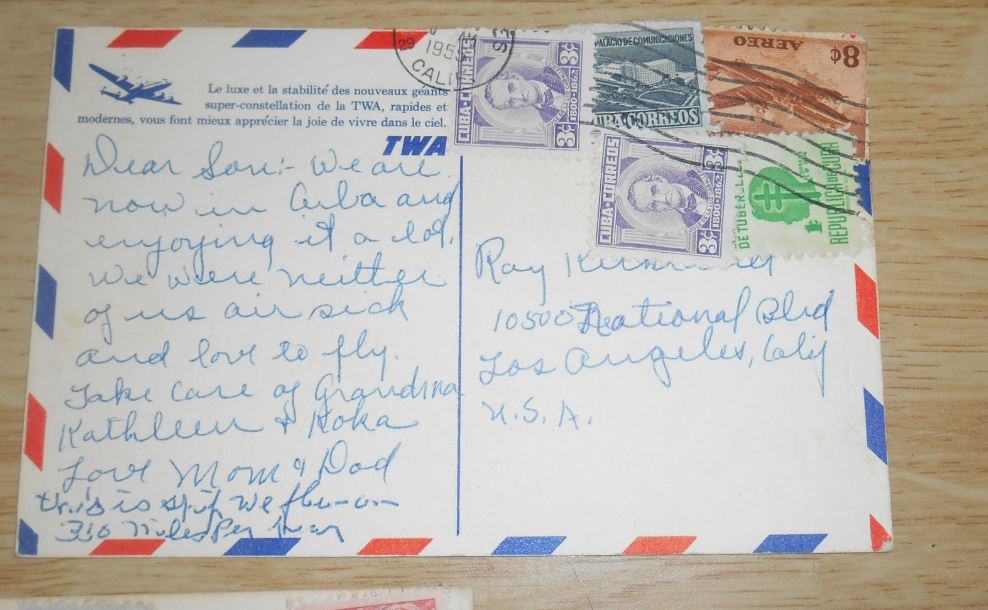 Le luxe et la stabilité des nouveaux géants
super-constellation de la TWA, rapides et
modernes, vous font mieux apprécier la joie de vivre dans le ciel.
TWA
Dear Son:- We are
now in Cuba and
enjoying it a lot.
We were neither
of us air sick
and love to fly.
Take care of Grandma
Kathleen & Koka
Love Mom & Dad
this is ship we flew on
310 Miles Per hour
29
195
CALIF
CUBA-CORREOS
3¢
3¢
1800-1862
PALACIO DE COMUNICACIONES
CUBA CORREOS
AEREO
8¢
CUBA-CORREOS
3¢
3¢
1800-1862
DE TUBER
REPUBLICA DE CUBA
1
Ray
10500 National Blvd
Los Angeles, Calif
U.S.A.